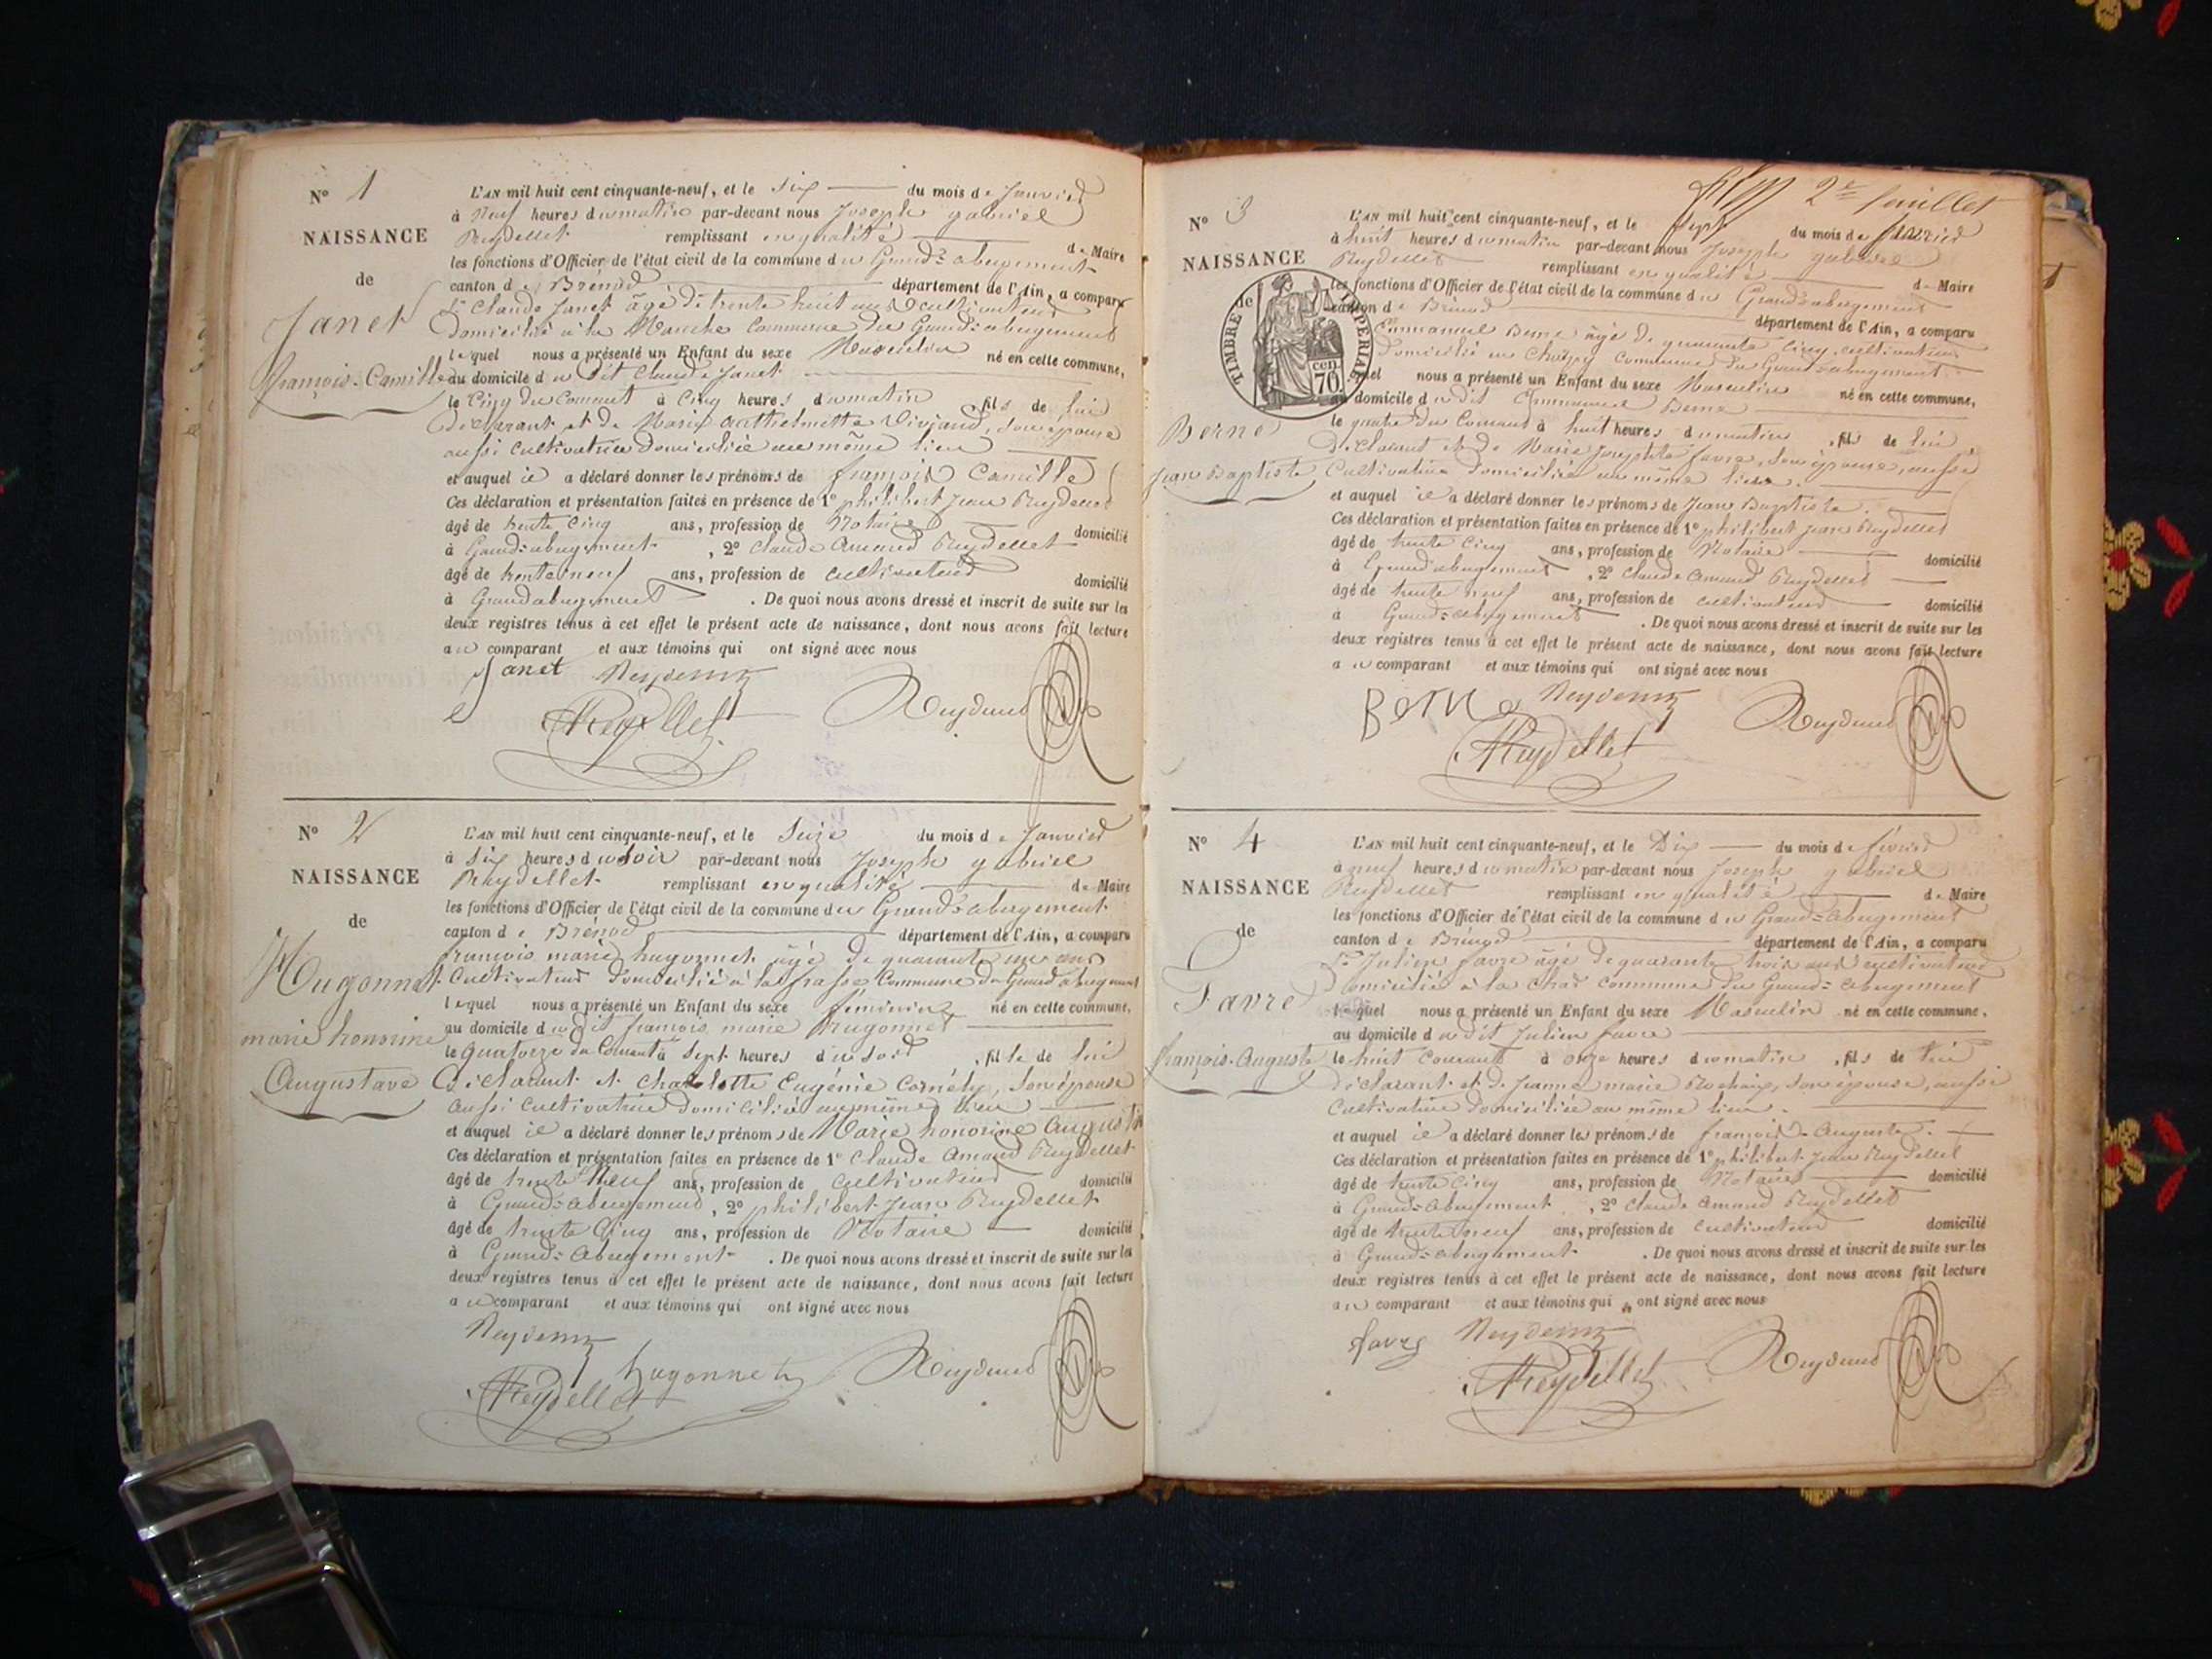 N° 1
NAISSANCE
de
Janet
françois-Camille
L'AN mil huit cent cinquante-neuf, et le Six du mois de Janvier
à Neuf heures du matin par-devant nous Joseph gabriel
Reydellet remplissant en qualité de Maire
les fonctions d'Officier de l'état civil de la commune du Grand=abergement
canton de Brénod département de l'Ain, a comparu
Sr Claude Janet âgé de trente huit ans cultivateur
domicilié à la Manche Commune du Grand=abergement
lequel nous a présenté un Enfant du sexe Masculin né en cette commune,
au domicile du dit Claude Janet
le Cinq du Courant à Cinq heures du matin, fils de lui
déclarant et de Marie Vivjand, son épouse
aussi Cultivatrice domiciliée au même lieu
et auquel il a déclaré donner les prénoms de françois Camille
Ces déclaration et présentation faites en présence de 1° philibert Jean Reydellet
âgé de trente Cinq ans, profession de Notaire domicilié
à Grand=abergement, 2° Claude Amand Reydellet
âgé de trente neuf ans, profession de Cultivateur domicilié
à Grandabergement. De quoi nous avons dressé et inscrit de suite sur les
deux registres tenus à cet effet le présent acte de naissance, dont nous avons fait lecture
au comparant et aux témoins qui ont signé avec nous
Janet
Reydellet
N° 2
NAISSANCE
de
Hugonnet
marie honorine
Augustave
L'AN mil huit cent cinquante-neuf, et le Seize du mois de Janvier
à Six heures du soir par-devant nous Joseph gabriel
Reydellet remplissant en qualité de Maire
les fonctions d'Officier de l'état civil de la commune du Grand=abergement
canton de Brénod département de l'Ain, a comparu
françois marie hugonnet âgé de quarante un ans
Cultivateur domicilié à la frasse Commune du Grand abergement
lequel nous a présenté un Enfant du sexe féminin né en cette commune,
au domicile du dit françois marie hugonnet
le Quatorze du Courant à Sept heures du soir, fille de lui
déclarant et Charlotte Eugénie Cornély, son épouse
aussi Cultivatrice domiciliée au même lieu
et auquel il a déclaré donner les prénoms de Marie honorine
Ces déclaration et présentation faites en présence de 1° Claude Amand Reydellet
âgé de trente Neuf ans, profession de Cultivateur domicilié
à Grand=abergement, 2° philibert Jean Reydellet
âgé de trente Cinq ans, profession de Notaire domicilié
à Grand=abergement. De quoi nous avons dressé et inscrit de suite sur les
deux registres tenus à cet effet le présent acte de naissance, dont nous avons fait lecture
au comparant et aux témoins qui ont signé avec nous
hugonnet
Reydellet
2e feuillet
TIMBRE IMPERIAL
70 cen
N° 3
NAISSANCE
de
Berne
Jean Baptiste
L'AN mil huit cent cinquante-neuf, et le Sept du mois de février
à huit heures du matin par-devant nous Joseph gabriel
Reydellet remplissant en qualité de Maire
les fonctions d'Officier de l'état civil de la commune du Grand=abergement
canton de Brénod département de l'Ain, a comparu
Emmanuel Berne âgé de quarante Cinq, cultivateur
domicilié en Commune du Grand=abergement
lequel nous a présenté un Enfant du sexe Masculin né en cette commune,
au domicile du dit Emmanuel Berne
le quatre du Courant à huit heures du matin, fils de lui
déclarant et de Marie Josephte favre, son épouse, aussi
Cultivatrice domiciliée au même lieu.
et auquel il a déclaré donner les prénoms de Jean Baptiste.
Ces déclaration et présentation faites en présence de 1° philibert Jean Reydellet
âgé de trente Cinq ans, profession de Notaire domicilié
à Grandabergement, 2° Claude Amand Reydellet
âgé de trente neuf ans, profession de cultivateur domicilié
à Grand=abergement. De quoi nous avons dressé et inscrit de suite sur les
deux registres tenus à cet effet le présent acte de naissance, dont nous avons fait lecture
au comparant et aux témoins qui ont signé avec nous
Berne
Reydellet
N° 4
NAISSANCE
de
Favre
françois-Auguste
L'AN mil huit cent cinquante-neuf, et le Dix du mois de février
à neuf heures du matin par-devant nous Joseph gabriel
Reydellet remplissant en qualité de Maire
les fonctions d'Officier de l'état civil de la commune du Grand=abergement
canton de Brénod département de l'Ain, a comparu
Sr Julien favre âgé de quarante trois ans cultivateur
domicilié à la Char commune du Grand=abergement
lequel nous a présenté un Enfant du sexe Masculin né en cette commune,
au domicile du dit Julien favre
le huit Courant à onze heures du matin, fils de lui
déclarant et de Jeanne marie son épouse, aussi
Cultivatrice domiciliée au même lieu.
et auquel il a déclaré donner les prénoms de françois-Auguste.
Ces déclaration et présentation faites en présence de 1° philibert Jean Reydellet
âgé de trente Cinq ans, profession de Notaire domicilié
à Grand=abergement, 2° Claude Amand Reydellet
âgé de trente neuf ans, profession de Cultivateur domicilié
à Grand=abergement. De quoi nous avons dressé et inscrit de suite sur les
deux registres tenus à cet effet le présent acte de naissance, dont nous avons fait lecture
au comparant et aux témoins qui ont signé avec nous
favre
Reydellet